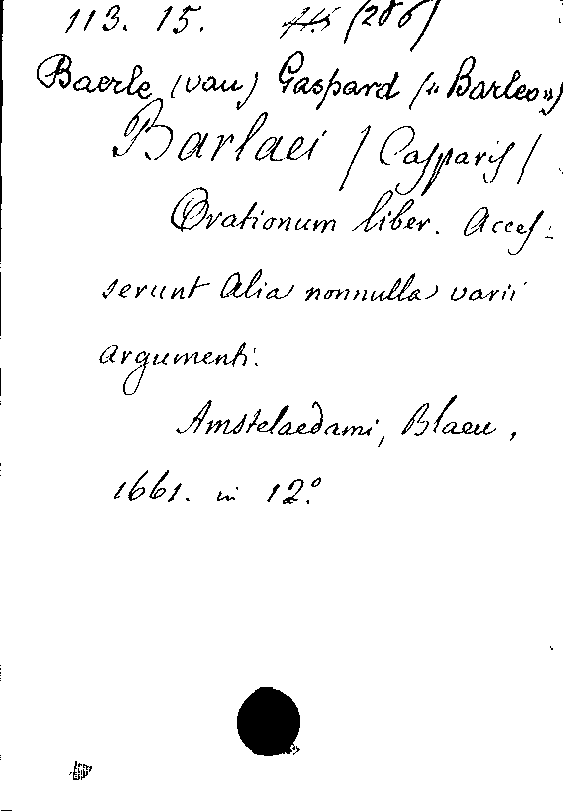 113. 15. (286)
Baerle (van) Gaspard (" Barleo ")
Barlaei / Casparis /
Orationum liber. Acces-
serunt Alia nonnulla varii
argumenti.
Amstelaedami, Blaeu,
1661. in 12.º